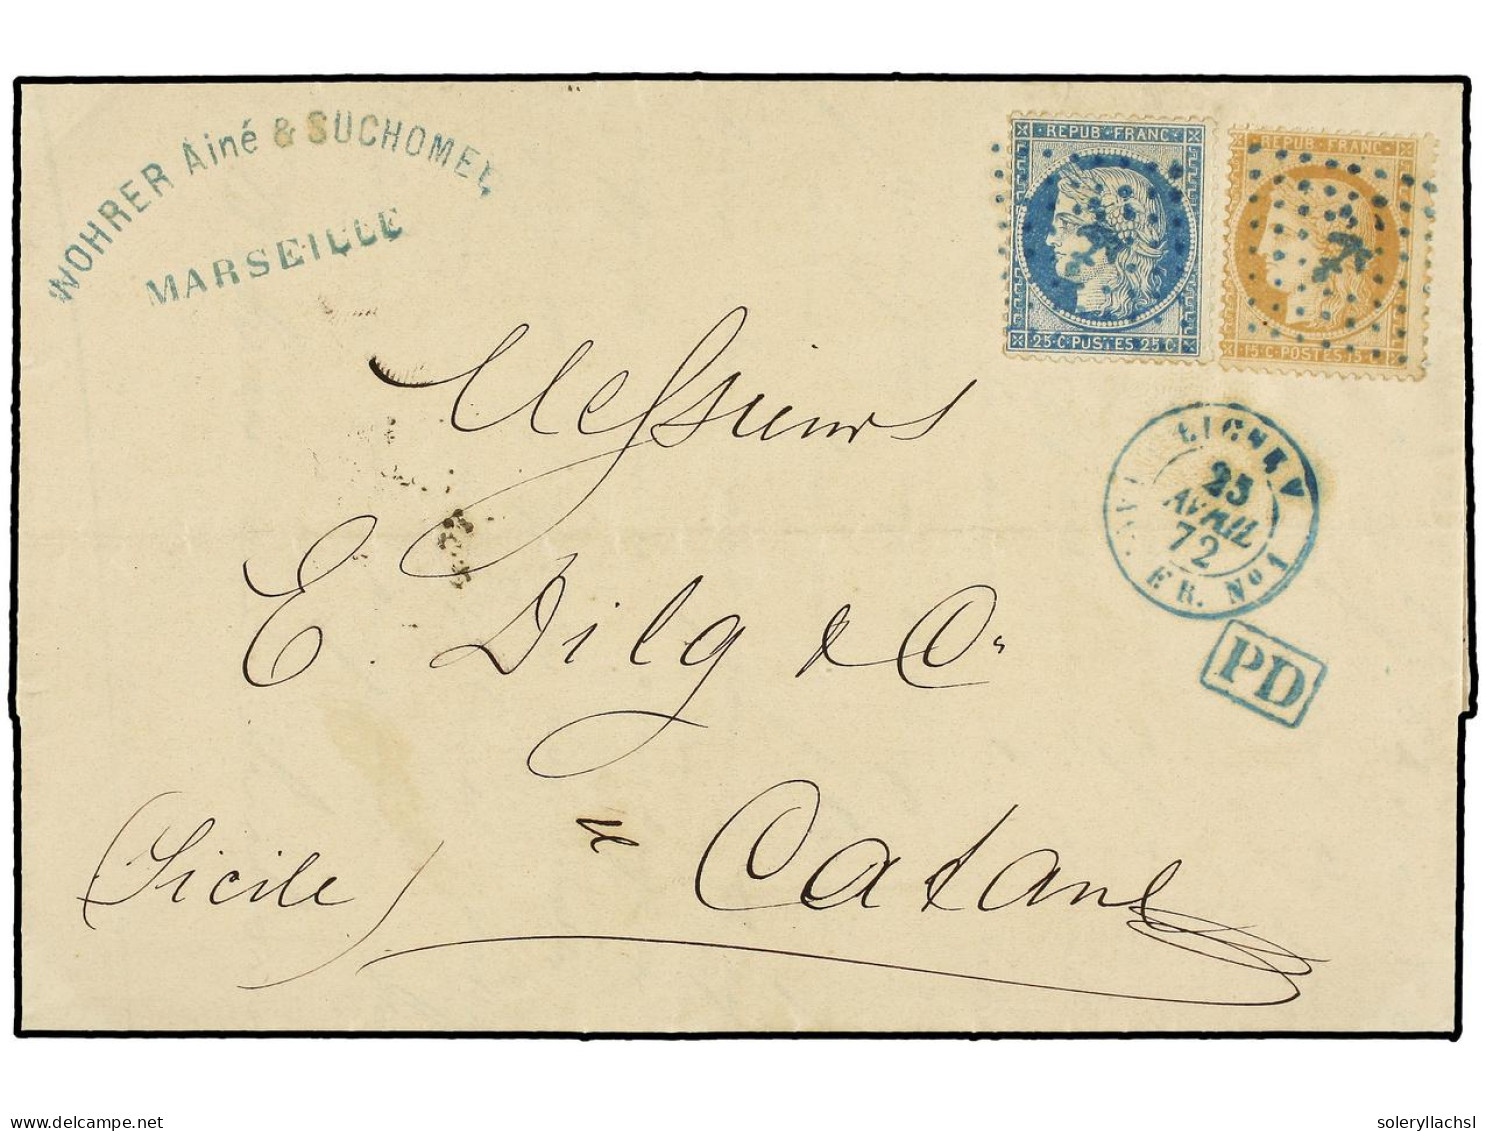 WOHRER Ainé & SUCHOMEL,
MARSEILLE
REPUB FRANC
25 C POSTES 25 C
REPUB FRANC
15 C POSTES 15 C
25
AVRIL
72
ER. No 1
PD
Messieurs
E. Dilg & Co.
Catane
(Sicile)
delcampe.net
soleryllachsl